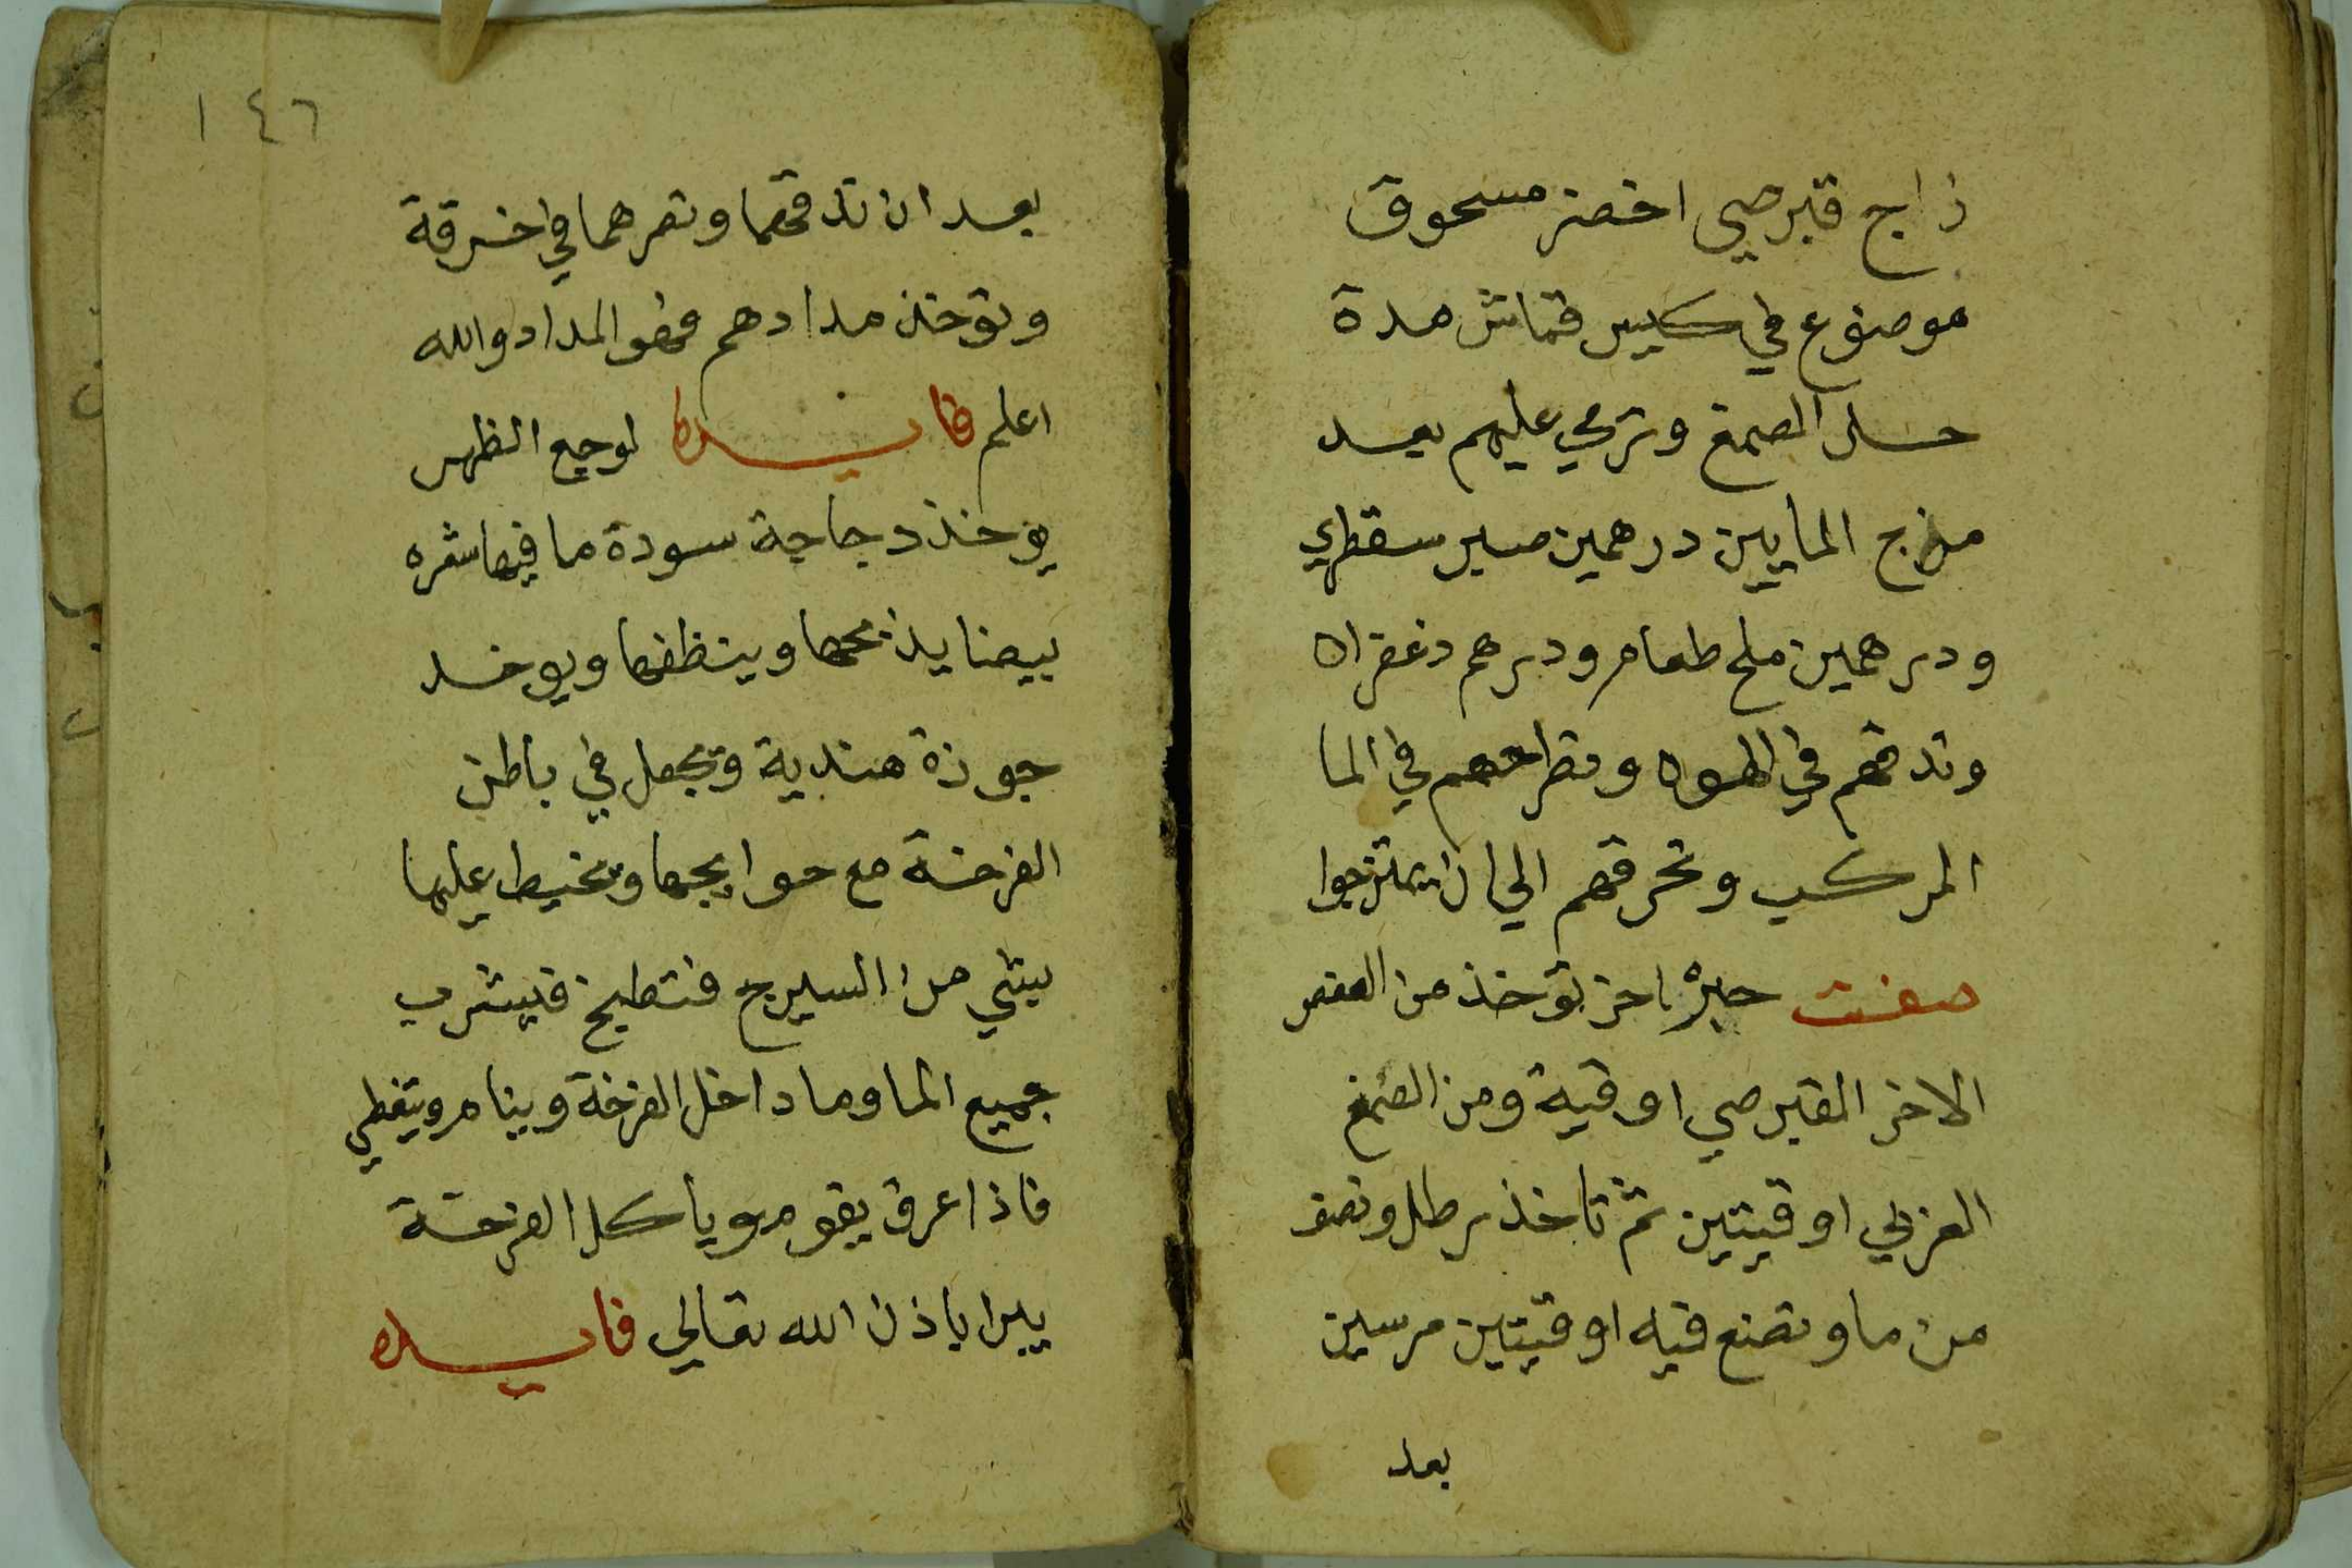 زاج قبرصي اخضر مسحوق
موضوع في كيس قماش مدة
حل الصمغ وترمي عليهم بعد
مزج المايين درهمين صبر سقطري
ودرهمين ملح طعام ودرهم زعفران
وتدقهم في الهون وتطرحهم في الما
المركب وتحرقهم الي ان يمتزجوا
صفت حبر اخر توخذ من العفص
الاخر القبرصي اوقية ومن الصمغ
العربي اوقيتين ثم تاخذ رطل ونصف
من ما وتضع فيه اوقيتين مرسين
بعد
١٤٦
بعد ان تدقهما وتصرهما في خرقة
وتوخذ مدادهم فهو المداد والله
اعلم فايده لوجع الظهر
يوخذ دجاجة سودة ما فيها شعره
بيضا يذبحها وينظفها ويوخد
جوزة هندية وتجعل في باطن
الفرخة مع حوايجها وتخيط عليها
بيشي من السيرج فتطبخ فيشرب
جميع الما وما داخل الفرخة وينام ويتغطي
فاذا عرق يقوم وياكل الفرخة
يبرا باذن الله تعالي فايده